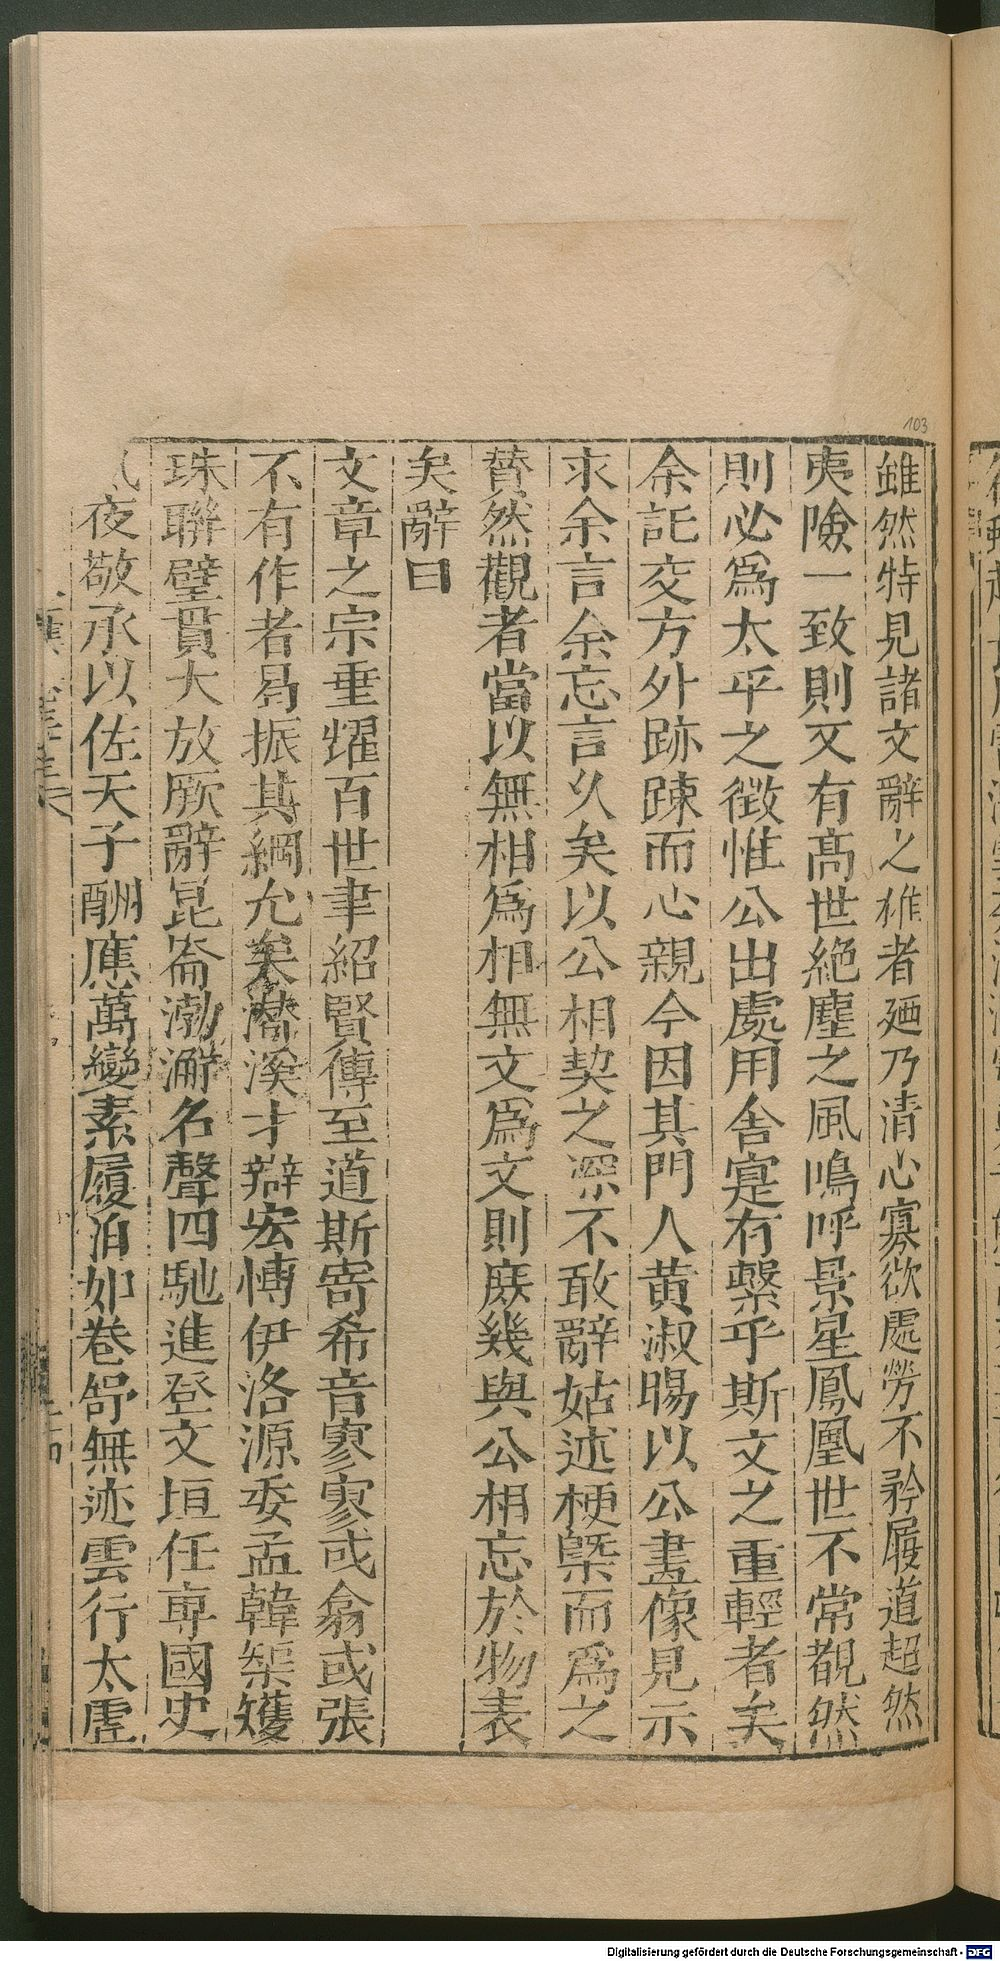 103
雖然特見諸文辭之雄者廼乃清心寡欲處勞不矜履道超然
夷險一致則又有高世絶塵之風嗚呼景星鳳凰世不常覩然
則必爲太平之徵惟公出處用舍寔有繫乎斯文之重輕者矣
余託交方外跡踈而心親今因其門人黄淑暘以公畫像見示
求余言余忘言乆矣以公相契之深不敢辭姑述梗槩而爲之
賛然觀者當以無相爲相無文爲文則庶幾與公相忘於物表
矣辭曰
文章之宗垂燿百世聿紹賢傳至道斯寄希音寥寥或翕或張
不有作者曷振其綱允矣潛溪才辯宏愽伊洛源委孟韓榘矱
珠聯璧貫大放厥辭崑崙渤澥名聲四馳進登文垣任專國史
夜敬承以佐天子酬應萬變素履泊如巻舒無迹雲行太虛
Digitalisierung gefördert durch die Deutsche Forschungsgemeinschaft - DFG